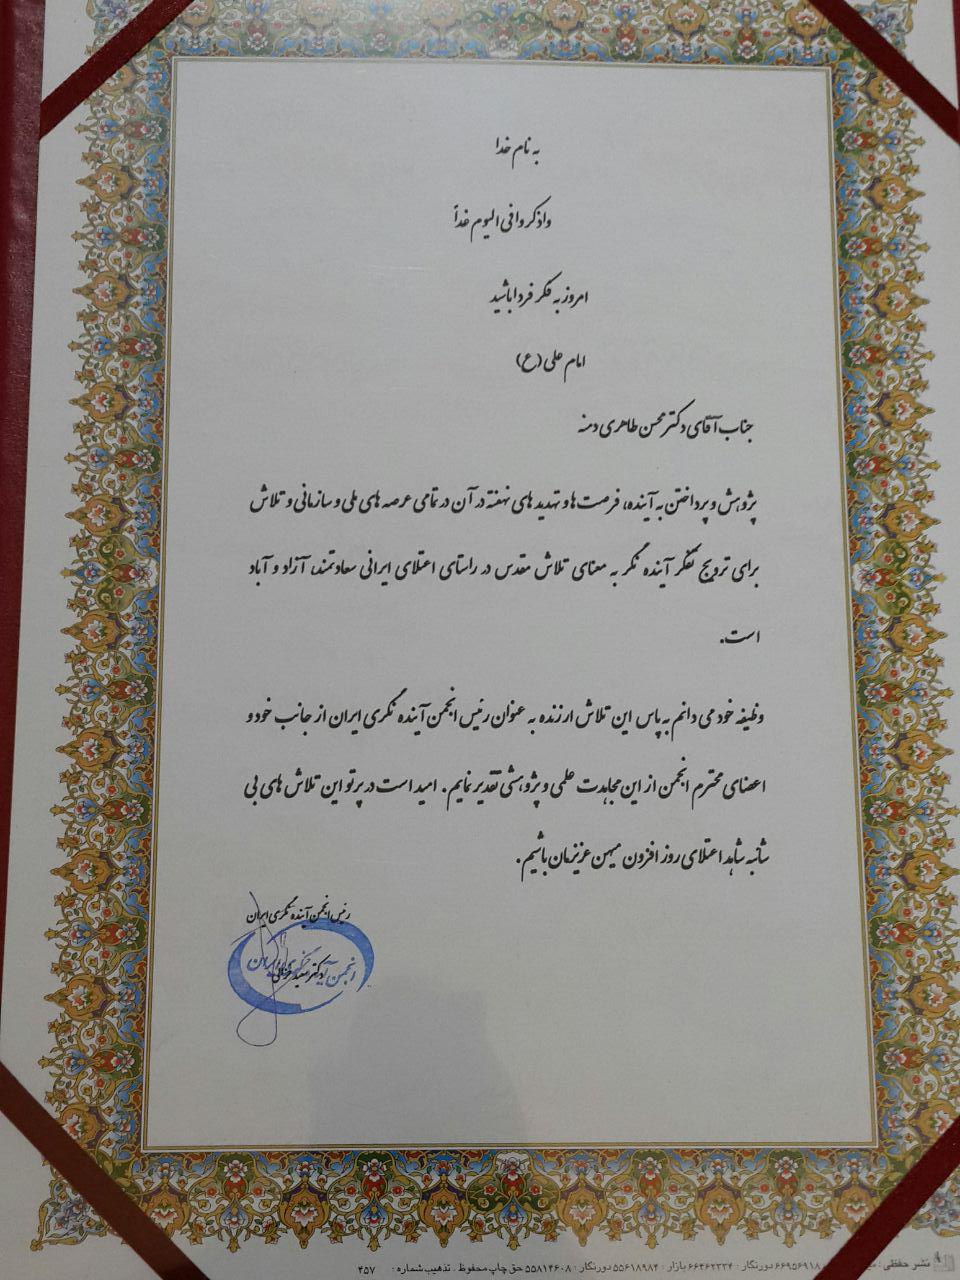 به نام خدا
واذکروا فی الیوم غداً
امروز به فکر فردا باشید
امام علی (ع)
جناب آقای دکتر محسن طاهری دمنه
پژوهش و پرداختن به آینده، فرصت ها و تهدید های نهفته در آن در تمامی عرصه های ملی و سازمانی و تلاش
برای ترویج تفکر آینده نگر به معنای تلاش مقدس در راستای اعتلای ایرانی سعادتمند، آزاد و آباد
است.
وظیفه خود می دانم به پاس این تلاش ارزنده به عنوان رئیس انجمن آینده نگری ایران از جانب خود و
اعضای محترم انجمن از این مجاهدت علمی و پژوهشی تقدیر نمایم. امید است در پرتو این تلاش های بی
شائبه شاهد اعتلای روز افزون میهن عزیزمان باشیم.
رئیس انجمن آینده نگری ایران
دکتر سعید
انجمن آینده نگری ایران
نشر حفظی : ۶۶۹۵۶۹۱۸ دورنگار : ۶۶۴۶۲۳۳۴ بازار : ۵۵۶۱۸۹۸۴ دورنگار : ۵۵۸۱۴۶۰۸ حق چاپ محفوظ . تذهیب شماره : ۴۵۷